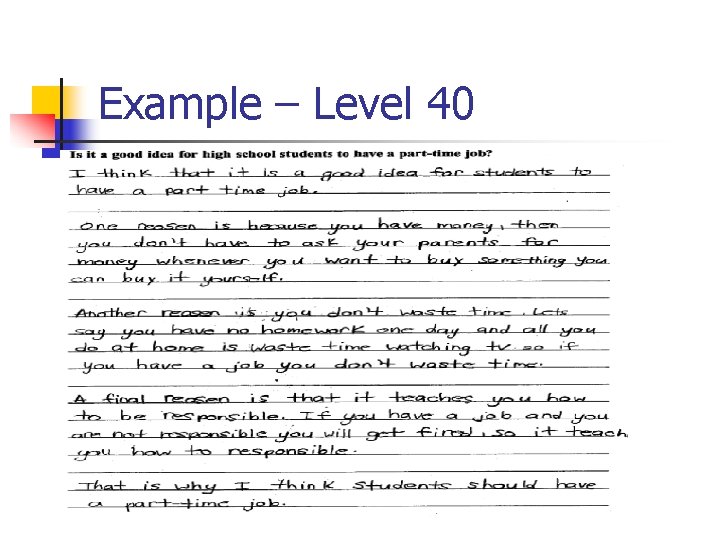 Example – Level 40
Is it a good idea for high school students to have a part-time job?
I think that it is a good idea for students to
have a part time job.
One reason is because you have money, then
you don't have to ask your parents for
money whenever you want to buy something you
can buy it yourself.
Another reason is you don't waste time. Lets
say you have no homework one day and all you
do at home is waste time watching tv. so if
you have a job you don't waste time.
A final reason is that it teaches you how
to be responsible. If you have a job and you
are not responsible you will get fired, so it teach
you how to responsible.
That is why I think students should have
a part-time job.